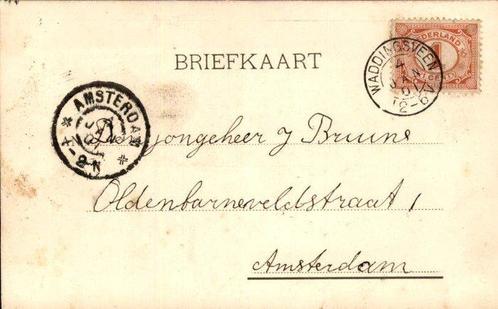 BRIEFKAART
NEDERLAND
1
WADDINGSVEEN
4
JAN
12-6
AMSTERDAM
Den jongeheer J Bruins
Oldenbarneveldstraat 1
Amsterdam